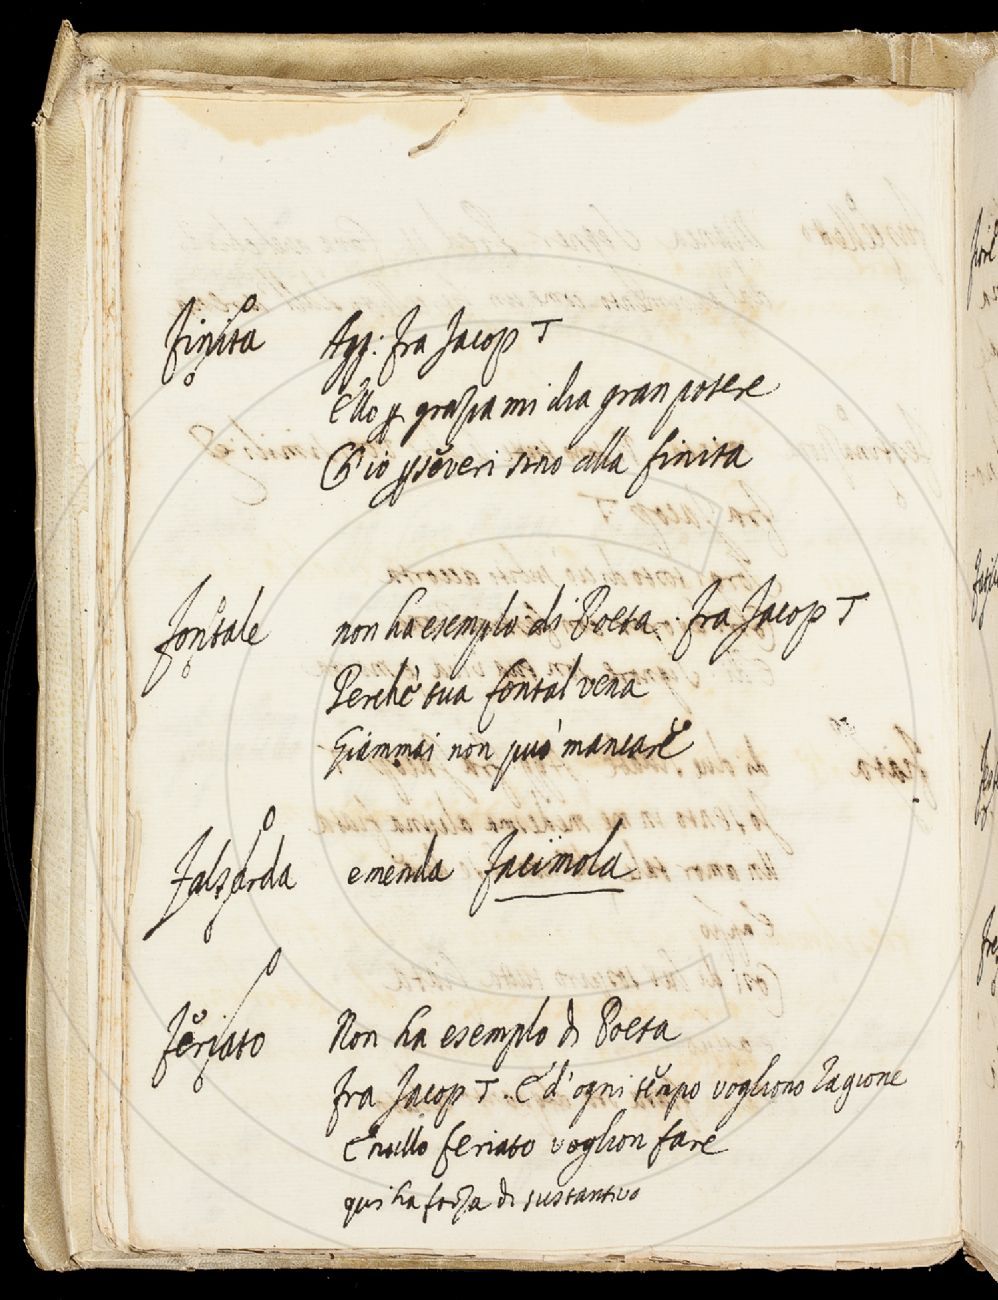 finita Agg: fra Jacop T
Ello ꝑ grazia mi dia gran potere
Ch'io ꝑseveri sino alla finita
fontale non ha esemplo di Poeta. fra Jacop T
Perche sua fontal vena
Giammai non può mancare
falzarda emenda facimola
feriato Non ha esemplo di Poeta
fra Jacop T. E d'ogni tempo vogliono ragione
E nullo feriato voglion fare
qui ha forza di sustantivo